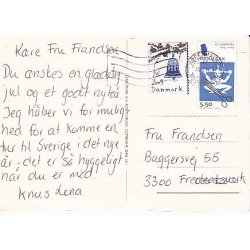 Kære Fru Frandsen
Du ønskes en glædelig
jul og et godt nytår
Jeg håber vi får mulig
hed for at komme en
tur til Sverige i det nye
år - det er så hyggeligt
når du er med.
Knus Lena
Danmark
5.50
Fru Frandsen
Baggersvej 55
3300 Frederiksværk